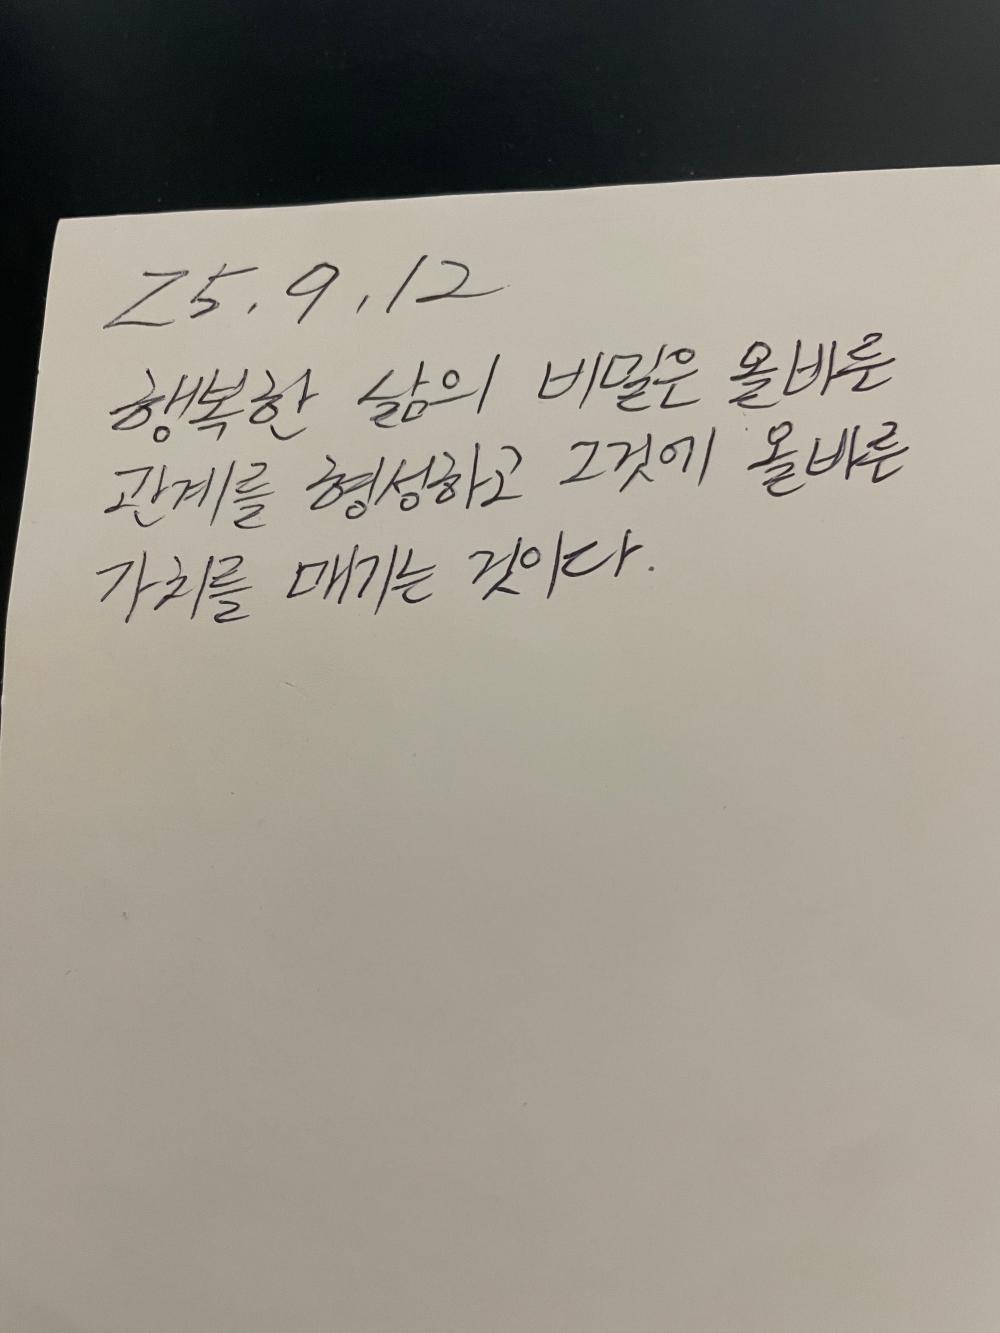 25.9.12
행복한 삶의 비밀은 올바른
관계를 형성하고 그것에 올바른
가치를 매기는 것이다.